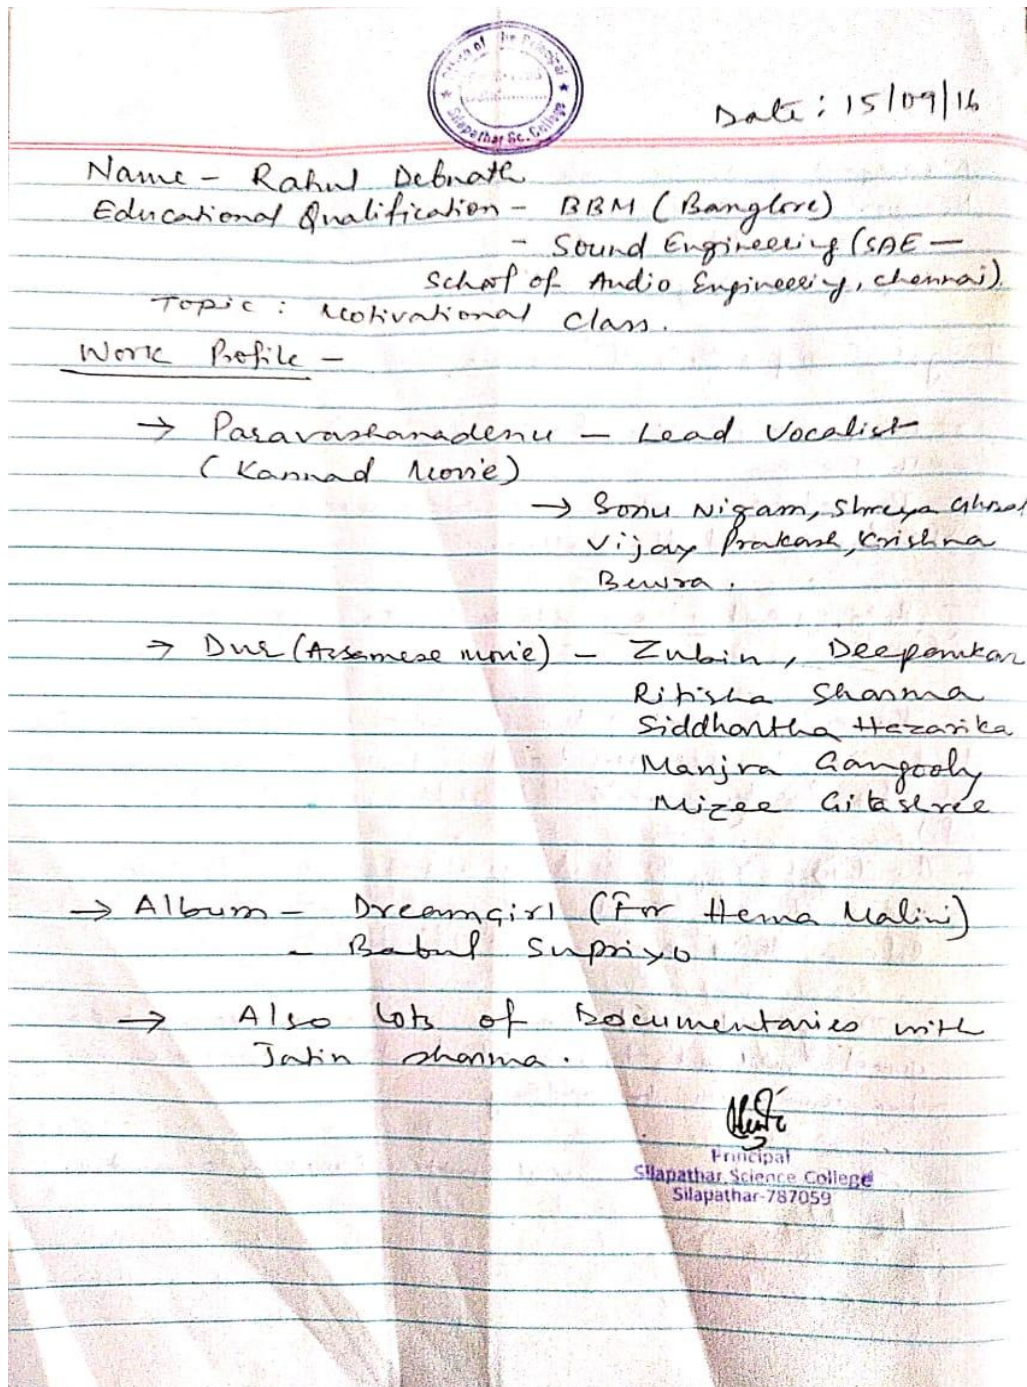 Office of the Principal
Silapathar Sc. College
Date: 15/09/16
Name - Rahul Debnath
Educational Qualification - BBM (Banglore)
- Sound Engineering (SAE -
School of Audio Engineering, Chennai)
Topic : Motivational Class.
Work Profile -
→ Paravashanadenu - Lead Vocalist
(Kannad Movie)
→ Sonu Nigam, Shreya Ghosal
Vijay Prakash, Krishna
Bewra.
→ Dur (Assamese movie) - Zubin, Deepamkar
Ritisha Sharma
Siddhartha Hazarika
Manjra Gangooly
Mizee Gitashree
→ Album - Dreamgirl (For Hema Malini)
- Babul Supriyo
→ Also lots of Documentaries with
Jatin Sharma.
Principal
Silapathar Science College
Silapathar-787059